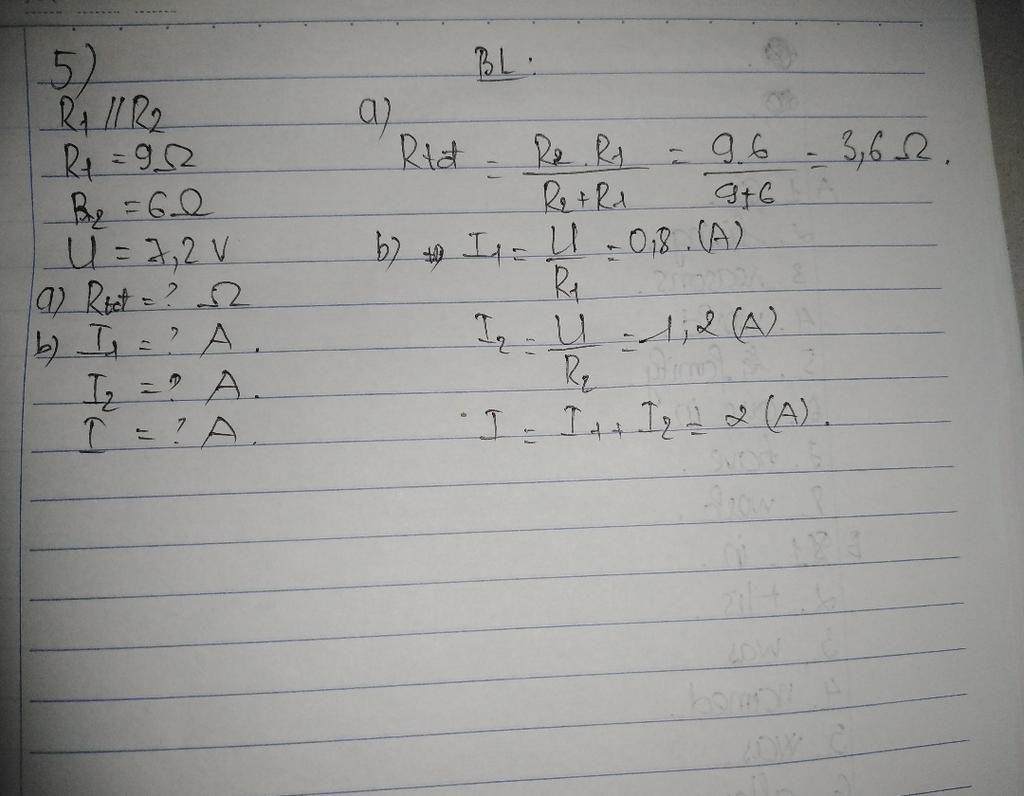 5)
BL:
R1 // R2
R1 = 9Ω
R2 = 6Ω
U = 7,2 V
a) Rtđ = ? Ω
b) I1 = ? A.
I2 = ? A.
I = ? A.
a)
Rtđ = R2.R1 / R2+R1 = 9.6 / 9+6 = 3,6 Ω.
b) I1 = U / R1 = 0,8.(A)
I2 = U / R2 = 1,2 (A)
I = I1 + I2 = 2 (A).